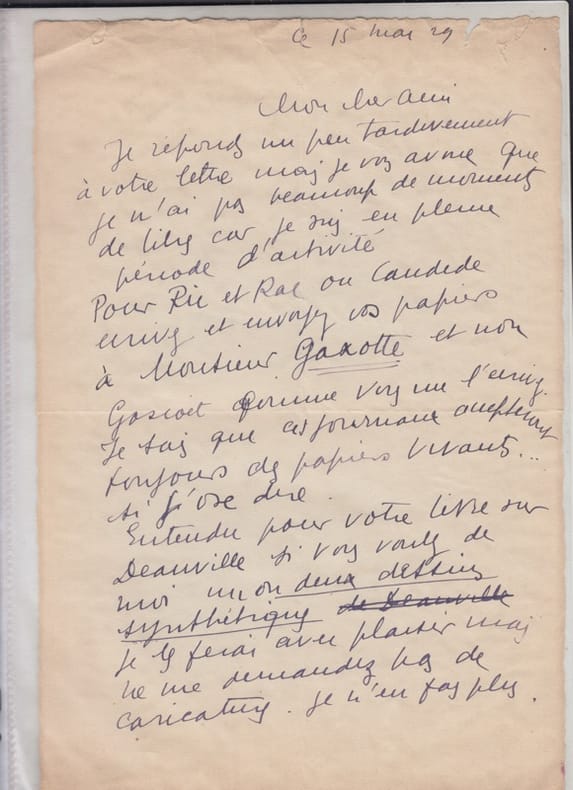 Ce 15 mai 29
Mon cher ami
Je réponds un peu tardivement
à votre lettre mais je vous avoue que
je n'ai pas beaucoup de moments
de libres car je suis en pleine
période d'activité
Pour Ric et Rac ou Candide
écrivez et envoyez vos papiers
à Monsieur Gaxotte et non
Gaxiot comme vous me l'écrivez.
Je sais que ces journaux accepteront
toujours des papiers vivants...
si j'ose dire.
Entendu pour votre livre sur
Deauville si vous voulez de
moi un ou deux dessins
synthétiques de Deauville
je les ferai avec plaisir mais
ne me demandez pas de
caricatures. Je n'en fais plus.